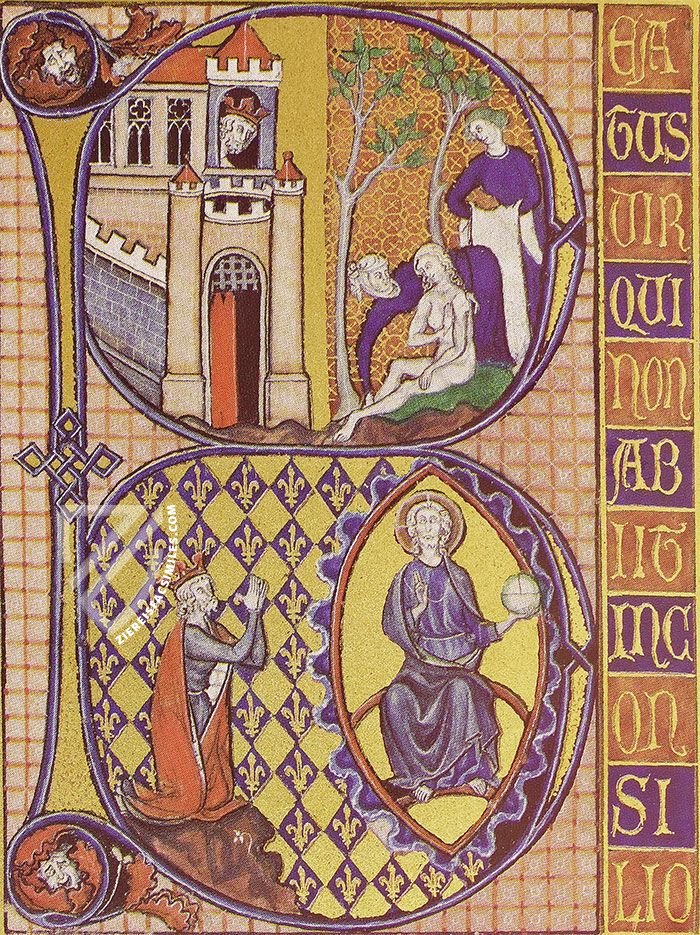 B
EA
TUS
VIR
QUI
NON
AB
IIT
INC
ON
SI
LIO
ZIEREIS FACSIMILES.COM